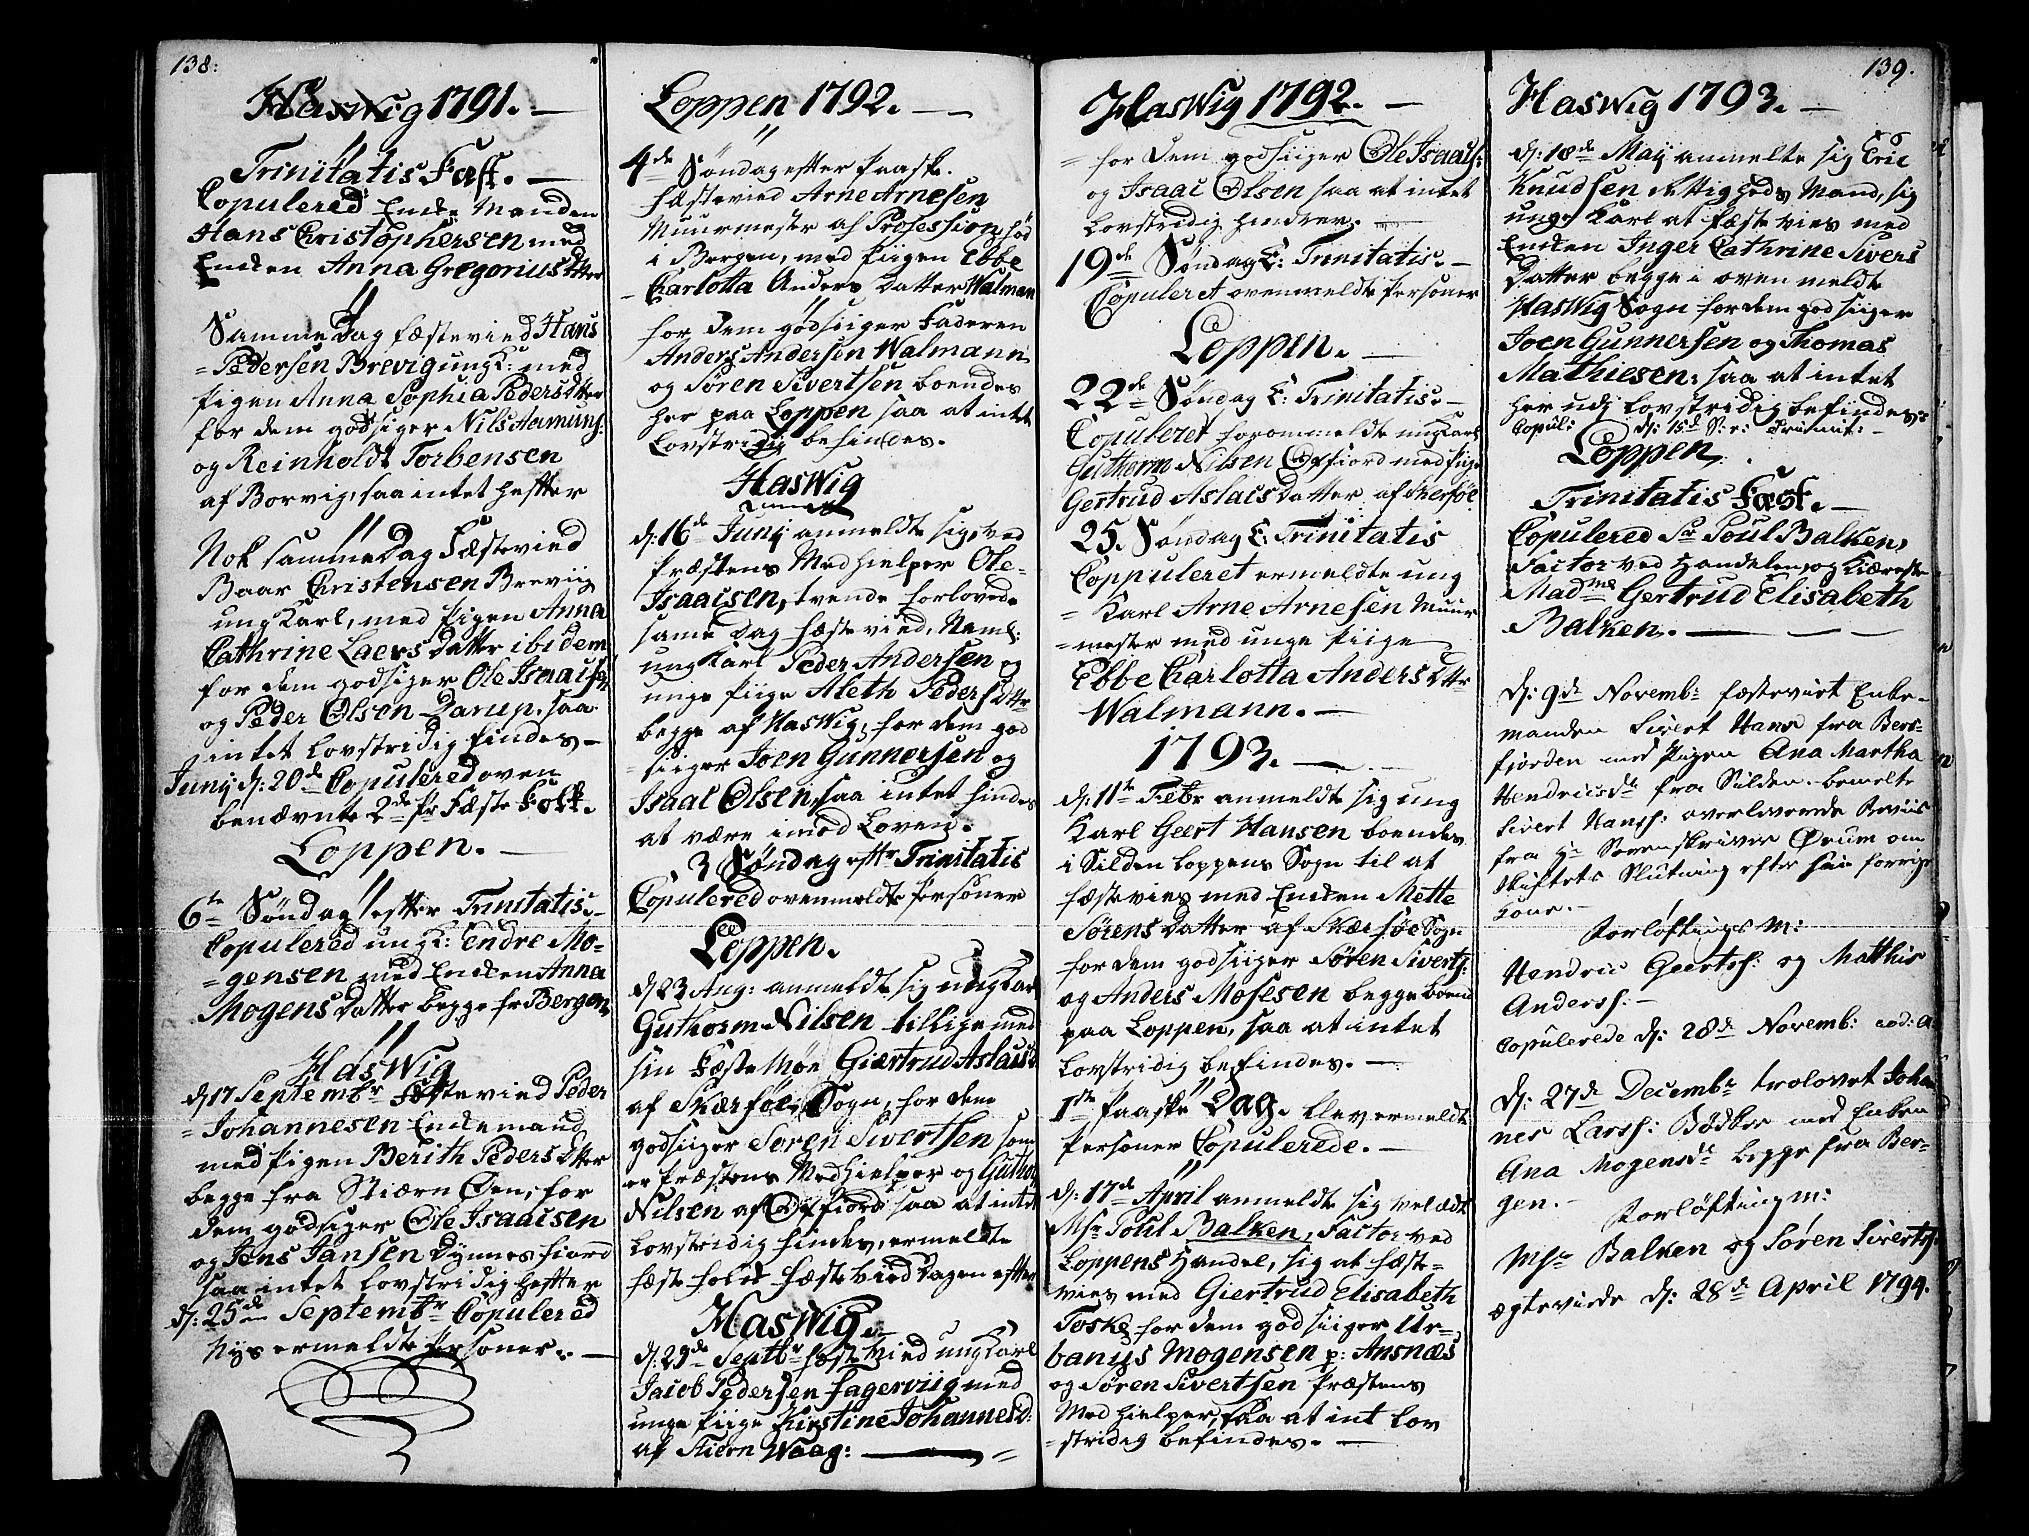 138:
Haswig 1791. —
Trinitatis Fæst. —
Copulered Enke Manden
Hans Christophersen med
Enken Anna Gregorius Dtter
Samme Dag fæstevied Hans
Pedersen Brevig ung K: med
Pigen Anna Sophia Peders Dtter
for dem godsiger Nils Amunds:
og Reinholdt Torbensen
af Borvig, saa intet hefter
Nok samme Dag Fæstevied
Baar Christensen Breviig
ung Karl, med Pigen Anna
Cathrine Laers Datter ibidem
for dem godsiger Ole Isaacsen
og Peder Olsen Darup, saa
intet lovstridig findes —
Junij d: 20de Copulered oven
benævnte 2de Pr Fæste Folk.
Loppen. —
6te Søndag efter Trinitatis. —
Copulered ung K: Endre Mo-
=gensen med Enken Anna
Mogens Datter begge fr Bergen
Haswig
d 17 Septembr Fæstevied Peder
=Johannesen Enkemand
med Pigen Berith Peders Dtter
begge fra Stiærn Øen, for
dem godsiger Ole Isaacsen
og Jens Jansen Dønnesfiord
saa intet lovstridig hefter
d: 25de Septembr Copulered
nys ermeldte Personer. —
Loppen 1792. —
4de Søndag efter Paaske.
fæstevied Arne Arnesen
Muurmester af Profession, fød
i Bergen, med Piigen Ebbe
Charlotta Anders Datter Walman
for dem godsiiger Faderen
Anders Andersen Walmann
og Søren Sivertsen boendes
her paa Loppen saa at intet
Lovstridig befindes.
Haswig
d: 16de Junij anmeldte sig, ved
Præstens Medhielper Ole
Isaacsen, tvende forlovede
same Dag fæstevied, Naml:
ung Karl Peder Andersen og
unge Piige Aleth Peders Dtr
begge af Haswig, for dem god
siiger Joen Gunnersen og
Isaac Olsen, saa intet findes
at være imod Loven.
3 Søndag efftr Trinitatis
Copulered ovenmeldte Personer
Loppen.
d 23 Aug: anmeldte sig ung Karl
Guthorm Nilsen tillige med
sin Fæste Møe Giertrud Aslacsd
af Skærføe Sogn, for dem
godsiiger Søren Sivertsen som
er Præstens Medhielper og Guthor
Nilsen af Oxfiord saa at intet
Lovstridig findes, ermeldte
fæste folk fæstevied Dagen efter
Haswig. —
d: 29de Septbr fæstevied ung Karl
Jacob Pedersen Fagerviig med
unge Piige Kirstine Johannesd:
af Stiern Waag: —
Haswig 1792. —
for dem godsiiger Ole Isaacs:
og Isaac Olsen saa at intet
Lovstridig hindrer. —
19de Søndag E: Trinitatis. —
Copuleret ovenmeldte Personer
Loppen. —
22de Søndag E: Trinitatis. —
Copuleret forommeldte ung Karl
Guthorm Nilsen Oxfiord med Piige
Gertrud Aslacs Datter af Skerføe
25. Søndag E: Trinitatis
Coppuleret ermeldte ung
=Karl Arne Arnesen Muur
=mester med unge Piige
Ebbe Charlotta Anders Dtr
Walmann. —
1793. —
d: 11te Febr anmeldte sig ung
Karl Geert Hansen boendes
i Silden Loppens Sogn til at
fæstevies med Enken Mette
Sørens Datter af Skærføe Sogn
for dem godsiiger Søren Siverts:
og Anders Mosesen begge boend
paa Loppen, saa at intet
Lovstridig befindes. —
1ste Paaske Dag. blev ermeldte
Personer Copulerede. —
d: 17de April anmeldte sig velædt
Msr Poul Balken, Factor ved
Loppens Handel, sig at fæste-
vies med Giertrud Elisabeth
Foske for dem godsiiger Ur-
banus Mogensen p: Ansnæs
og Søren Sivertsen Præstens
Medhielper, saa at int Lov
=stridig befindes. —
139.
Haswig 1793. —
d: 18de Maij anmelte sig Eric
Knudsen Rettigheds Mand, sig
unge Karl at fæstevies med
Enken Inger Cathrine Sivers
Datter begge i ovenmeldte
Haswig Sogn for dem godsiiger
Joen Gunnersen og Thomas
Mathiesen: saa at intet
her udj Lovstridig befindes:
Copul: d: 15de S: e: Trinit: —
Loppen
Trinitatis Fæst. —
Copulered Sr Poul Balken,
Factor ved Handelen, og Kiæreste
Madme Gertrud Elisabeth
Balken. —
d: 9de Novembr fæstevirt Enke-
manden Sivert Hans fra Bers-
fiorden med Pigen Ana Martha
Hendricsdtr fra Silden. bemelte
Sivert Hans: overleverede Beviis
fra Hr Sorenskriver Ørum om
Skiftets Slutning efter hans forrige
Kone. —
Forløftings M:
Hendric Geerts: og Matthis
Anders: —
Copulerede d: 28de Novemb: eod: a:
d: 27de Decembr trolovet Johan
nes Larss: Bødker med Enken
Ana Mogensdr begge fra Ber-
gen. —
Forløftingm:
Msr Balken og Søren Siverts:
ægteviede d: 28de April 1794.